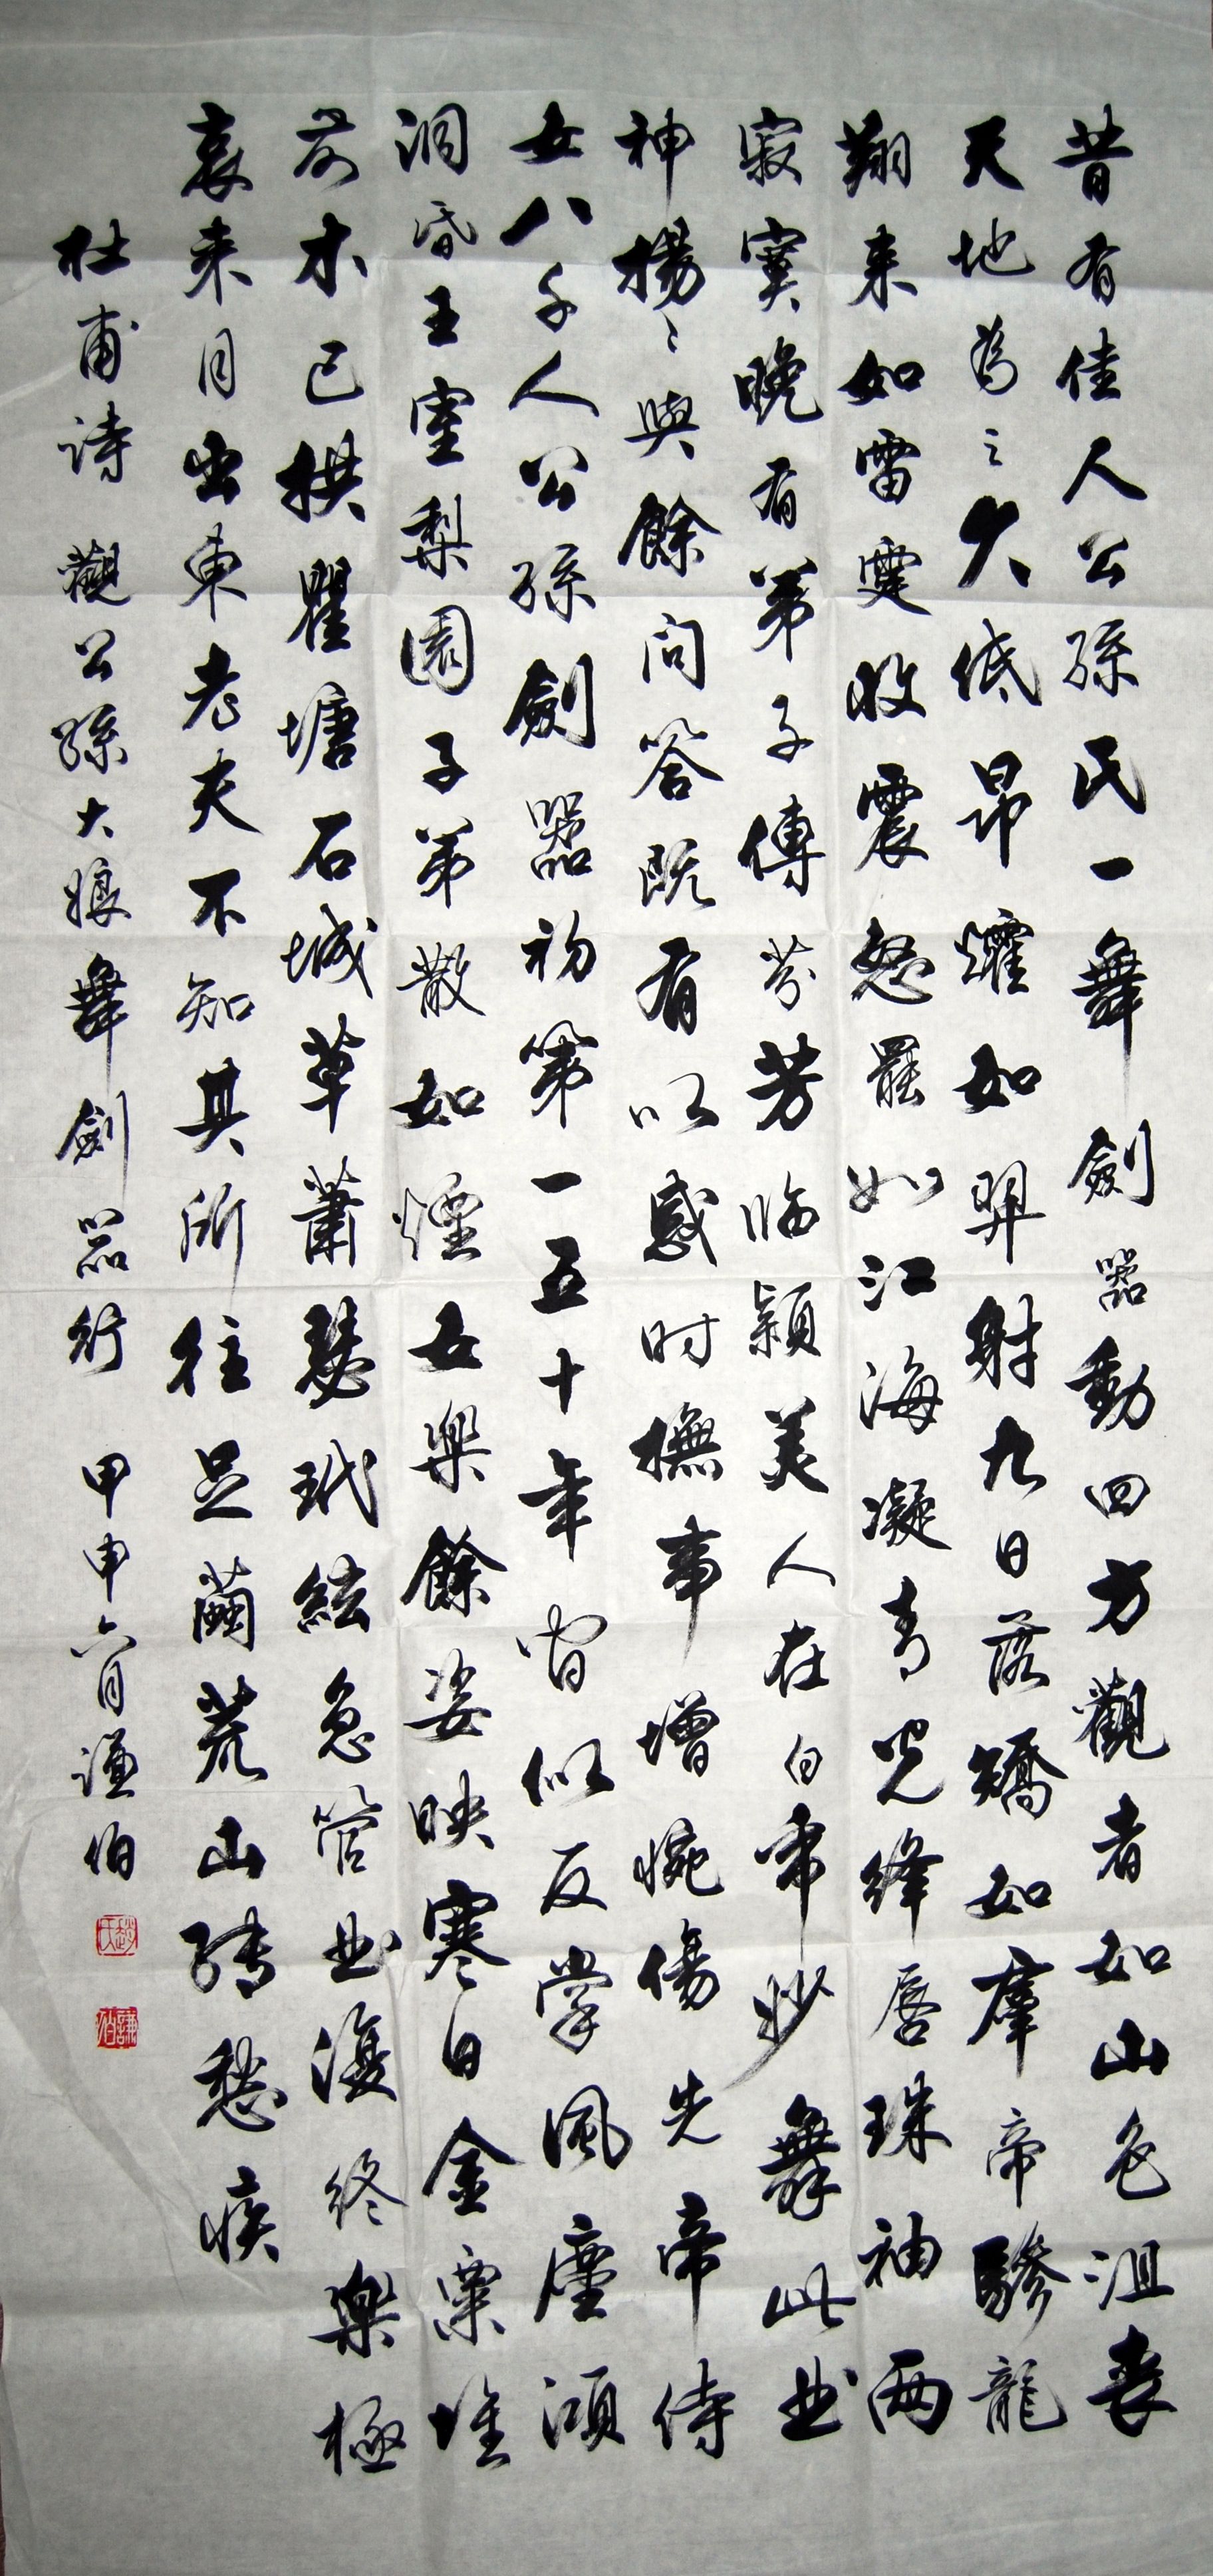 昔有佳人公孫氏一舞劍器動四方觀者如山色沮喪
天地為之久低昂㸌如羿射九日落矯如羣帝驂龍
翔來如雷霆收震怒罷如江海凝青光絳唇珠袖兩
寂寞晚有弟子傳芬芳臨潁美人在白帝妙舞此曲
神揚〻與餘問答既有以感時撫事增惋傷先帝侍
女八千人公孫劍器初第一五十年間似反掌風塵澒
洞昏王室梨園子弟散如煙女樂餘姿映寒日金粟堆
前木已拱瞿塘石城草蕭瑟玳絃急管曲復終樂極
哀來月出東老夫不知其所往足繭荒山轉愁疾
杜甫詩 觀公孫大娘舞劍器行 甲申六月謙伯
趙氏
謙伯